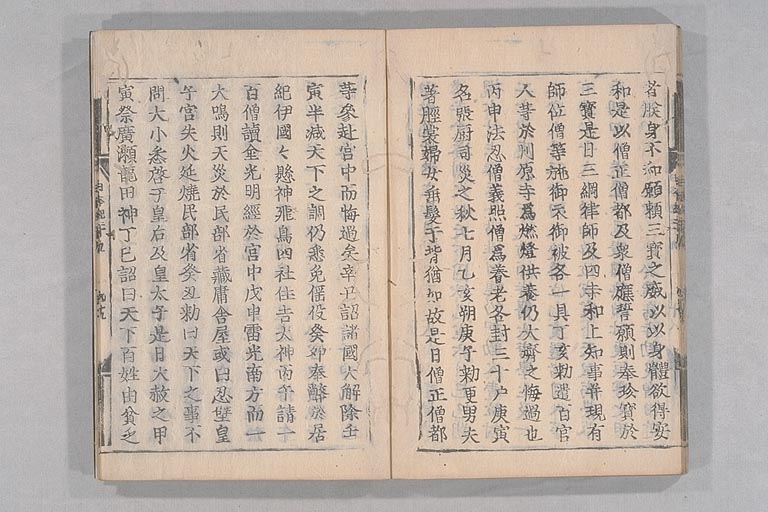 者朕身不和願頼三寳之威以以身體欲得安
和是以僧正僧都及衆僧應誓願則奉珍寳於
三寳是日三綱律師及四寺和上知事并現有
師位僧等施御衣御被各一具丁亥勅遣百官
人等於川原寺爲燃燈供養仍大齋之悔過也
丙申法忍僧義照僧爲養老各封三十戸庚寅
名張厨司灾之秋七月乙亥朔庚子勅更男夫
著脛裳婦女垂髮于背猶如故是日僧正僧都
等参赴宮中而悔過矣辛丑詔諸國大解除壬
寅半减天下之調仍悉免傜役癸卯奉幣於居
紀伊國々懸神飛鳥四社住吉大神丙午請一
百僧讀金光明經於宮中戊申雷光南方而一
大鳴則天灾於民部省藏庸舎屋或曰忍壁皇
子宮失火延燒民部省癸丑勅曰天下之事不
問大小悉啓于皇后及皇太子是日大赦之甲
寅祭廣瀬龍田神丁巳詔曰天下百姓由貧乏